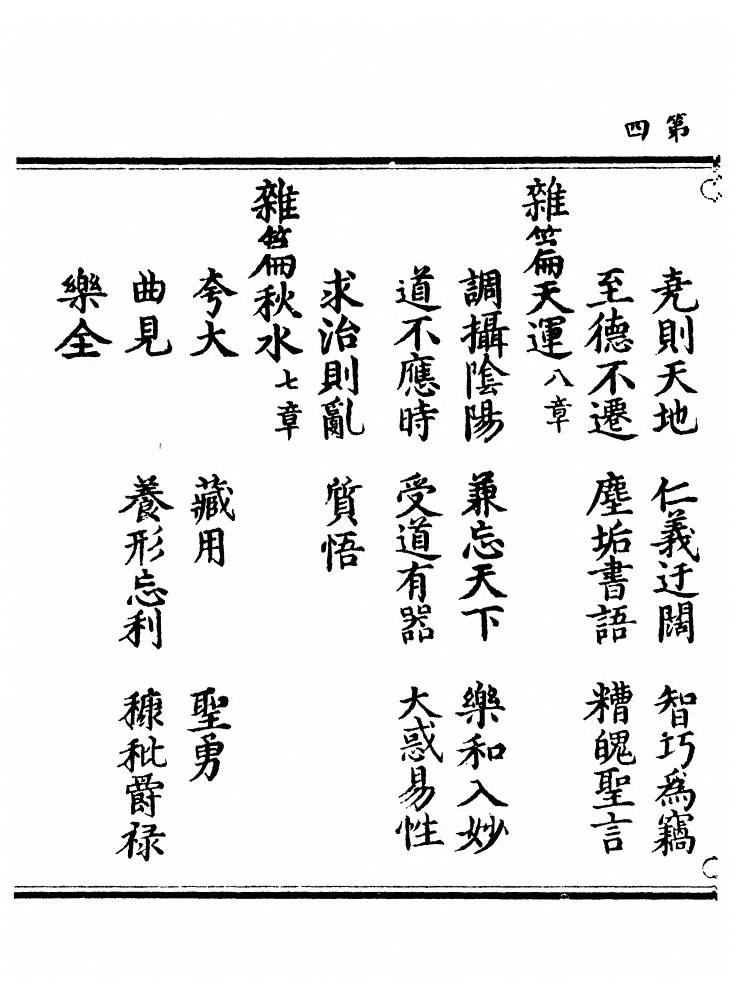 第四
堯則天地 仁義迂闊 智巧爲竊
至德不遷 塵垢書語 糟魄聖言
雜篇天運 八章
調攝陰陽 兼忘天下 樂和入妙
道不應時 受道有器 大惑易性
求治則亂 質悟
雜篇秋水 七章
夸大 藏用 聖勇
曲見 養形忘利 糠秕爵祿
樂全